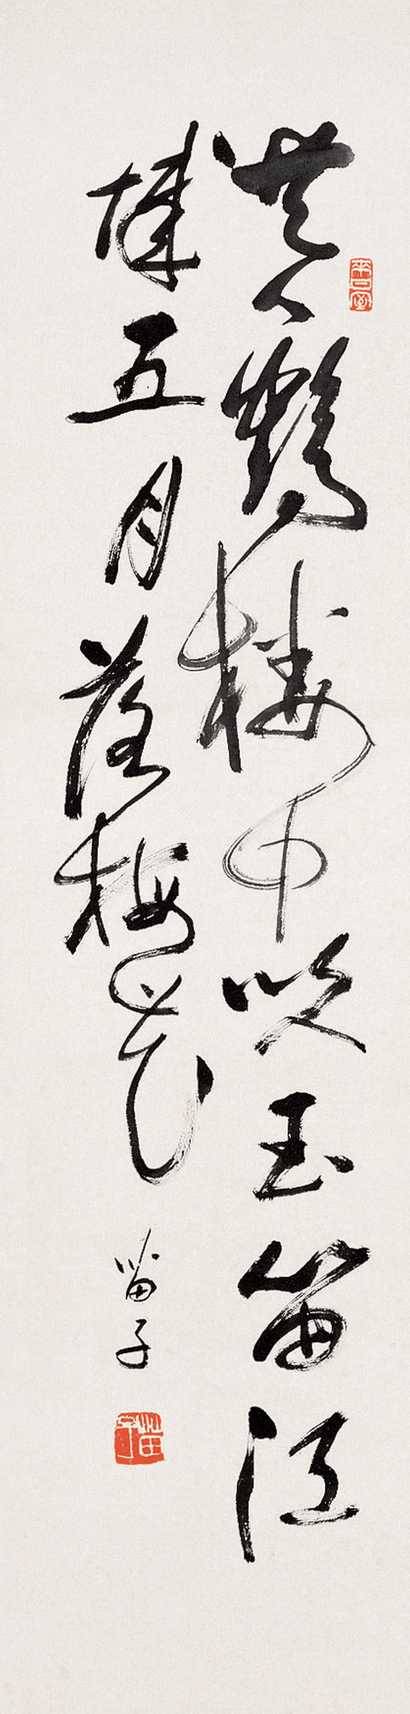 黃鶴樓中吹玉笛江
城五月落梅花
苗子
苗子